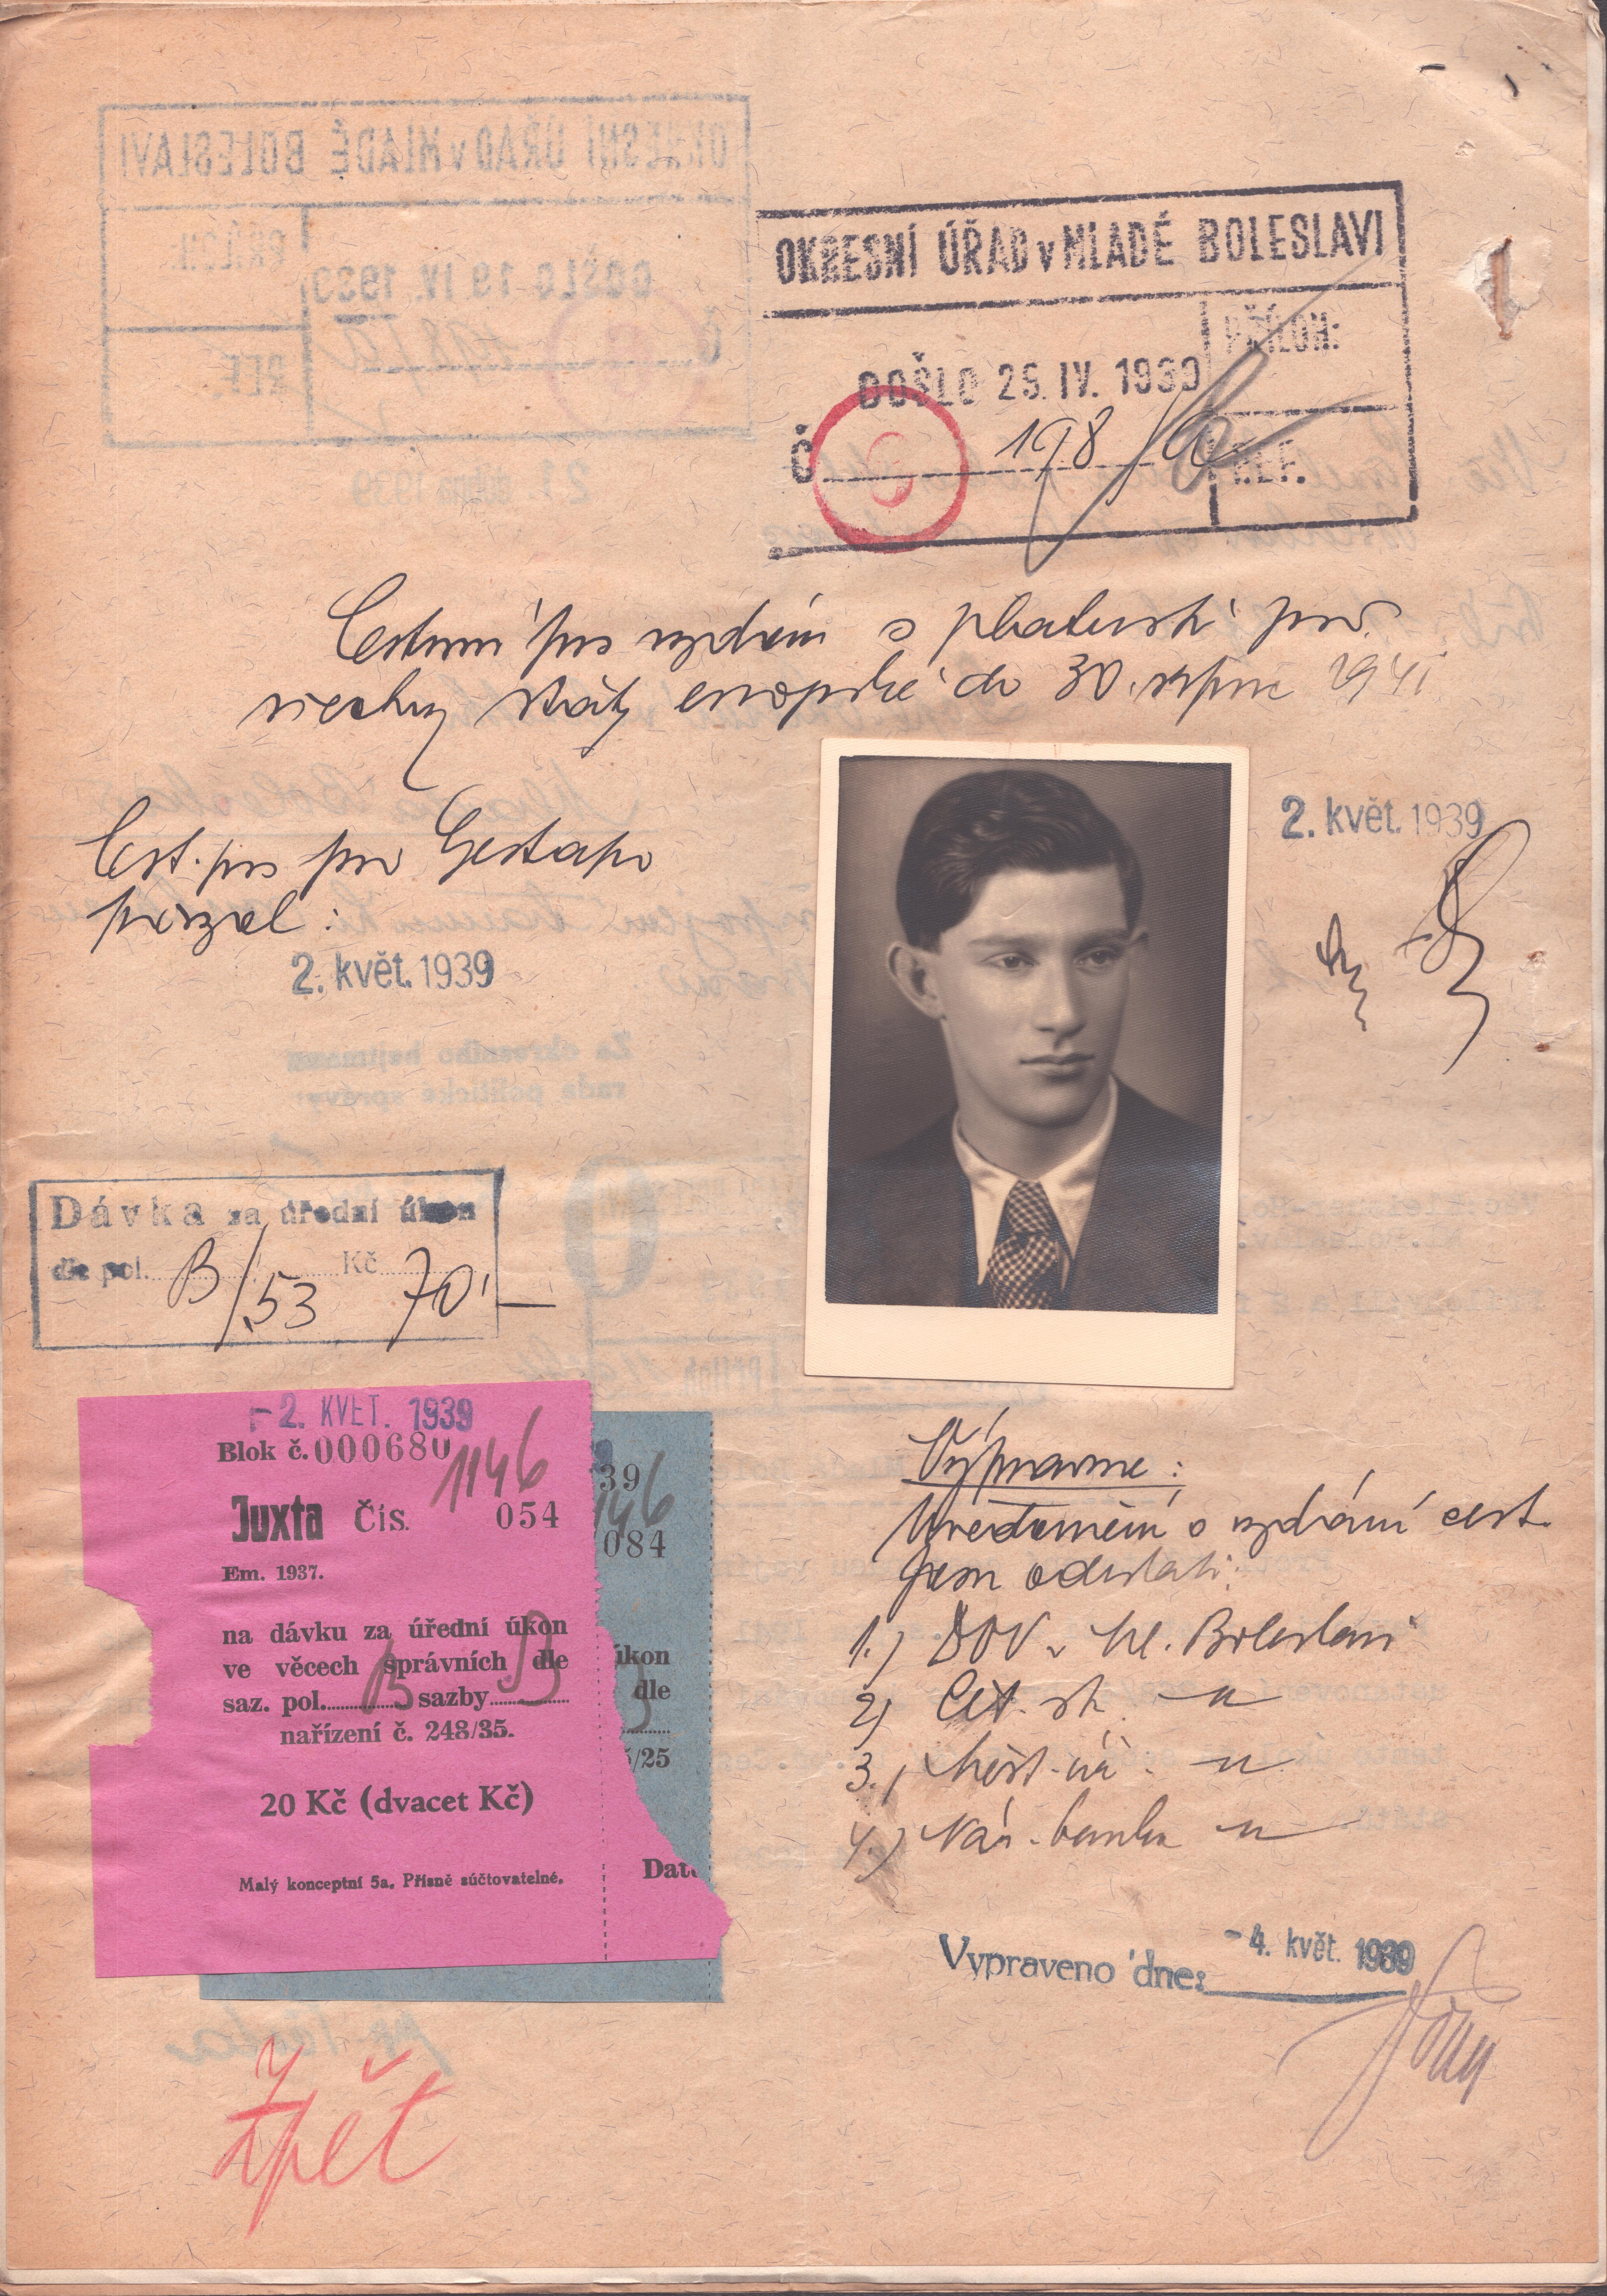 OKRESNÍ ÚŘAD v MLADÉ BOLESLAVI
PŘÍLOH:
DOŠLO 25. IV. 1939
Č 198/
REF.
Cestovní pas vydán s platností pro
všechny státy evropské do 30. srpna 1941
2. květ. 1939
Cest. pas pro Gestapo
převzal:
2. květ. 1939
Dávka za úřední úkon
dle pol. B/53 Kč 70'—
- 2. KVĚT. 1939
Blok č. 000680
1146
Juxta Čís. 054
Em. 1937.
na dávku za úřední úkon
ve věcech správních dle
saz. pol. B sazby B
nařízení č. 248/35.
20 Kč (dvacet Kč)
Malý konceptní 5a. Přísně súčtovatelné.
39
146
084
úkon
dle
/25
Dat
Výpravna:
Uvědomění o vydání cest.
pasu odeslati:
1.) DOV v Ml. Boleslavi
2) Čet. st. -"-
3.) Měst. úř. -"-
4.) Nár. banka -"-
Vypraveno dne: - 4. květ. 1939
Zpět